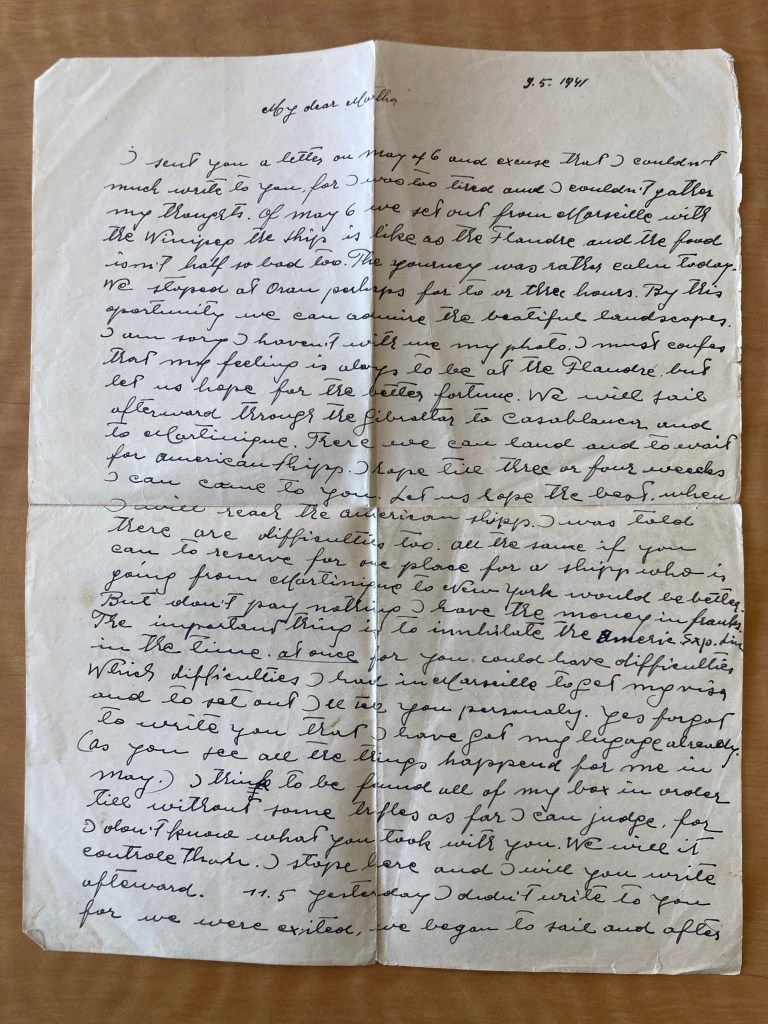 9.5.1941
My dear Martha
I sent you a letter on May 4 6 and excuse that I couldn't
much write to you, for I was too tired and I couldn't gather
my thoughts. Of May 6 we set out from Marseille with
the Winipeg the ship is like as the Flandre and the food
isn't half so bad too. The yourney was rather calm today.
We stoped at Oran perhaps for to or three hours. By this
oportunity we can admire the beatiful landscapes.
I am sory I haven't with me my photo. I must confes
that my feeling is always to be at the Flandre, but
let us hope for the better fortune. We will sail
afterward through the Gibraltar to Casablanca and
to Martinique. There we can land and to wait
for american shipp. I hope till three or four weecks
I can came to you. Let us hope the best, when
I will reach the american shipp. I was told
there are difficulties too. All the same if you
can to reserve for me place for a shipp who is
going from Martinique to New York would be better.
But don't pay nothing I have the money in franks
The important thing is to the Americ. Exp. Line
in the time. at once for you could have difficulties
Which difficulties I had in Marseille to get my visa
and to set out I'll tell you personaly. Yes forgot
to write you that I have got my lugage already.
(as you see all the things happend for me in
May.) I think to be found all of my box in order
till without some trifles as far I can judge, for
I don't know what you took with you. We will it
controle. I stope here and I will you write
afterward. 11.5 yesterday I didn't write to you
for we were exited, we began to sail and after